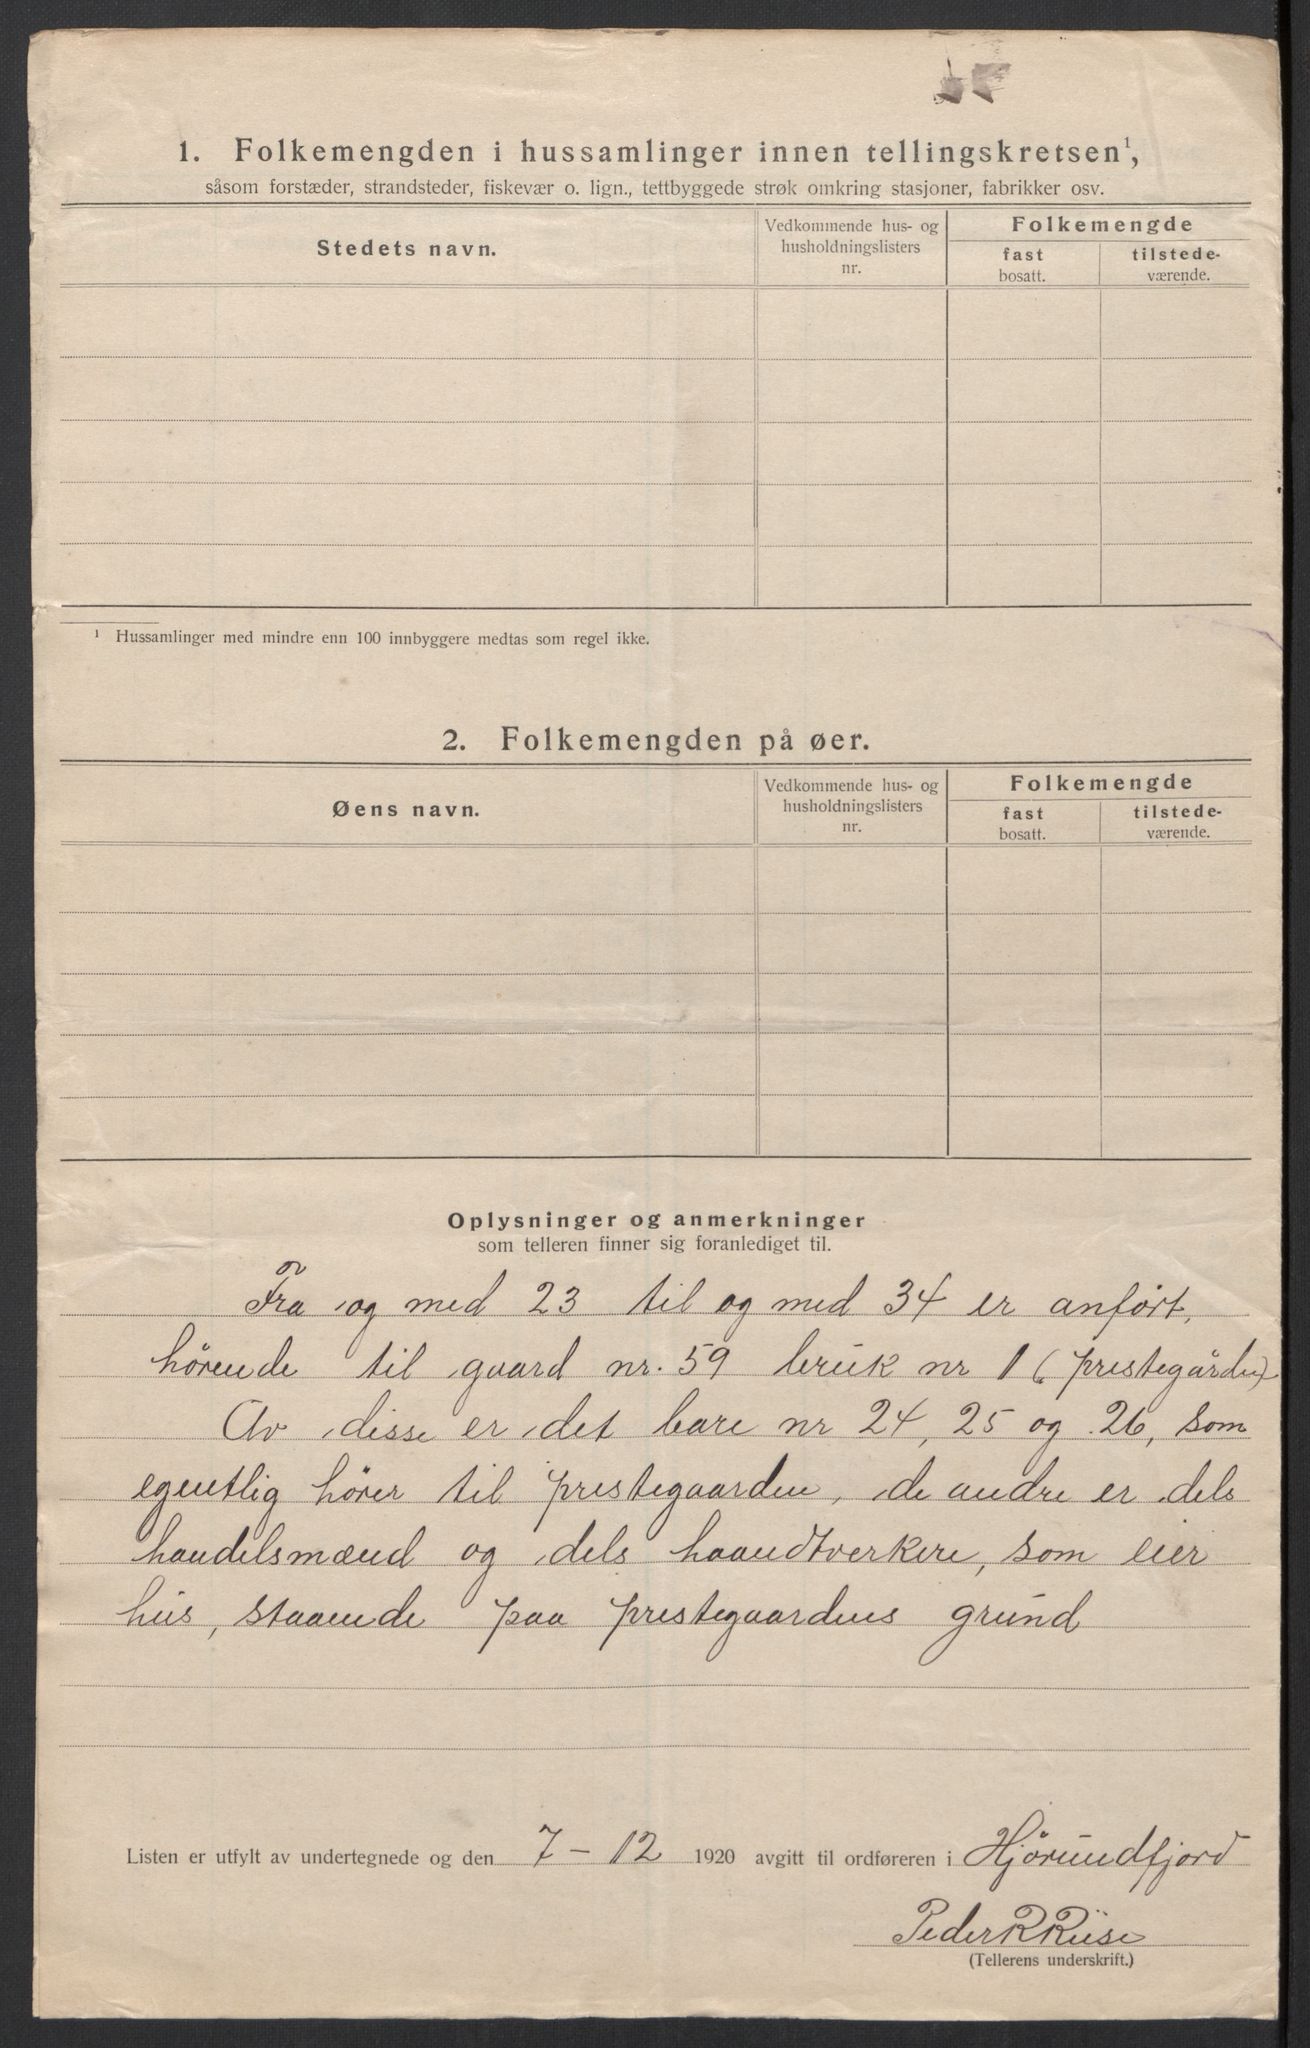 1. Folkemengden i hussamlinger innen tellingskretsen¹,
såsom forstæder, strandsteder, fiskevær o. lign., tettbyggede strøk omkring stasjoner, fabrikker osv.
Stedets navn.
Vedkommende hus- og
husholdningslisters
nr.
Folkemengde
fast
bosatt.
tilstede-
værende.
¹ Hussamlinger med mindre enn 100 innbyggere medtas som regel ikke.
2. Folkemengden på øer.
Øens navn.
Vedkommende hus- og
husholdningslisters
nr.
Folkemengde
fast
bosatt.
tilstede-
værende.
Oplysninger og anmerkninger
som telleren finner sig foranlediget til.
Fra og med 23 til og med 34 er anført,
hørende til gaard nr. 59 bruk nr 1 (prestegården)
Av disse er det bare nr 24, 25 og 26, som
egentlig hører til prestegaarden, de andre er dels
handelsmænd og dels haandtverkere, som eier
hus, staaende paa prestegaardens grund
Listen er utfylt av undertegnede og den 7-12 1920 avgitt til ordføreren i Hjørundfjord
Peder R Riise
(Tellerens underskrift.)